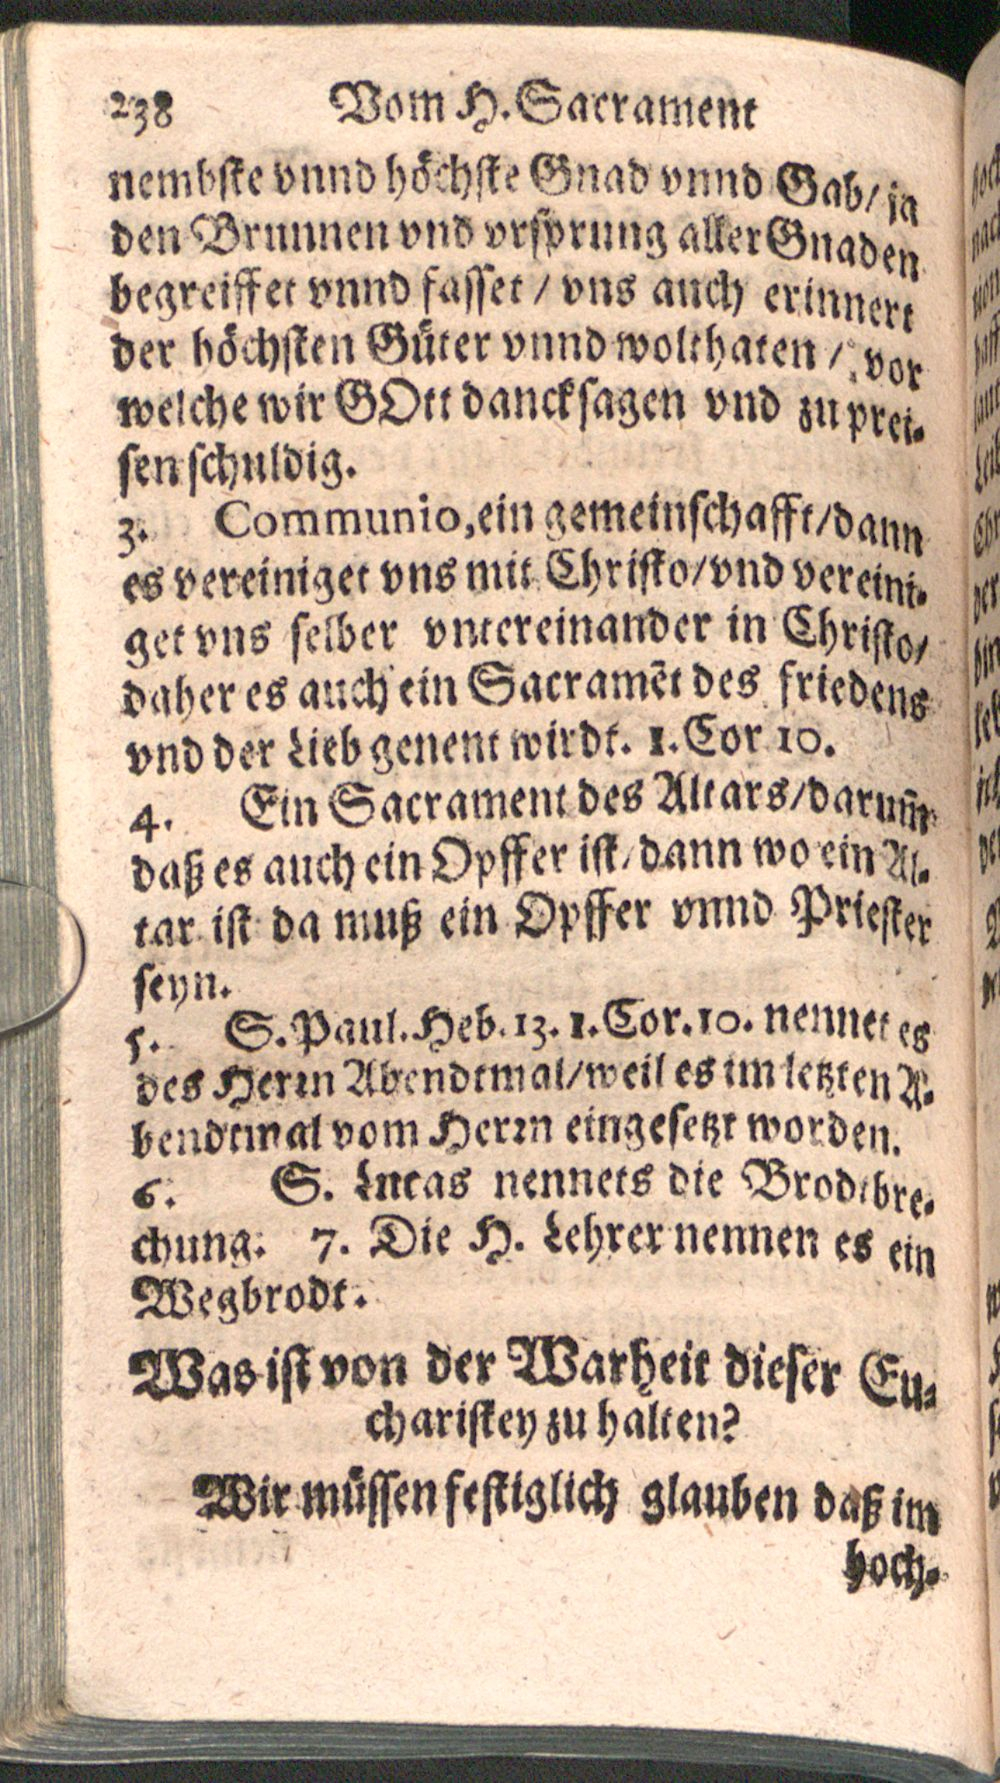 238 Vom H. Sacrament
nembste vnnd höchste Gnad vnnd Gab/ ja
den Brunnen vnd vrsprung aller Gnaden
begreiffet vnnd fasset / vns auch erinnert
der höchsten Güter vnnd wolthaten / vor
welche wir GOtt dancksagen vnd zu prei-
sen schuldig.
3. Communio, ein gemeinschafft/dann
es vereiniget vns mit Christo/vnd vereini-
get vns selber vntereinander in Christo/
daher es auch ein Sacramẽt des friedens
vnd der Lieb genent wirdt. 1. Cor 10.
4. Ein Sacrament des Altars/darum̃
daß es auch ein Opffer ist/dann wo ein Al-
tar ist da muß ein Opffer vnnd Priester
seyn.
5. S. Paul. Heb. 13. 1. Cor. 10. nennet es
des Herrn Abendtmal/weil es im letzten A-
bendtmal vom Herrn eingesetzt worden.
6. S. Lucas nennets die Brodtbre-
chung. 7. Die H. Lehrer nennen es ein
Wegbrodt.
Was ist von der Warheit dieser Eu-
charistey zu halten?
Wir müssen festiglich glauben daß im
hoch-